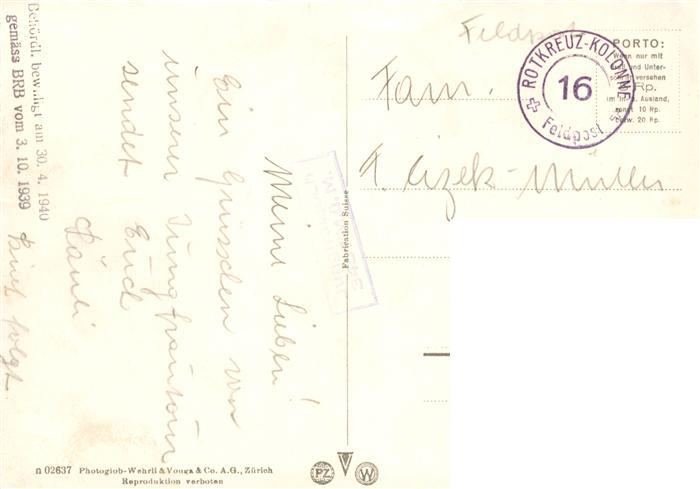 Behördl. bewilligt am 30. 4. 1940
gemäss BRB vom 3. 10. 1939
Meine Lieben!
Ein Grüsschen von
unserer Jungfrautour
sendet Euch
Päuli
Brief folgt.
n 02637 Photoglob-Wehrli & Vouga & Co. A.G., Zürich
Reproduktion verboten
Fabrication Suisse
PZ
W
Feldpost
ROTKREUZ-KOLONNE
16
Feldpost
PORTO:
Wenn nur mit
und Unter-
schrift versehen
Rp.
im Ausland,
sonst 10 Rp.
bezw. 20 Rp.
Fam.
F. Cizek-Müller